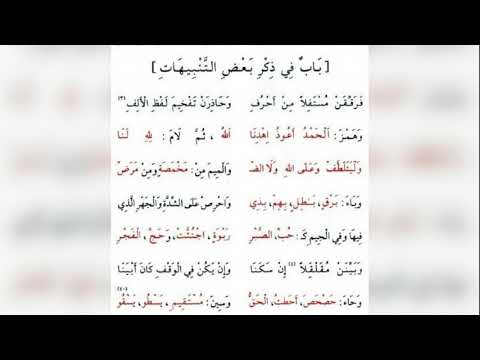 [ بَابٌ فِي ذِكْرِ بَعْضِ التَّنْبِيهَاتِ ]
فَرَقِّقَنْ مُسْتَفِلاً مِنْ أَحْرُفِ وَحَاذِرَنْ تَفْخِيمَ لَفْظِ الْأَلِفِ
وَهَمْزَ: الْحَمْدُ أَعُوذُ اِهْدِنَا اللهُ ، ثُمَّ لَامَ: لِلهِ لَنَا
وَلْيَتَلَطَّفْ وَعَلَى اللهِ وَلَا الضْـ وَالْمِيمَ مِنْ: مَخْمَصَةٍ وَمِنْ مَرَضْ
وَبَاءَ: بَرْقٍ، بَاطِلٍ، بِهِمْ، بِذِي وَاحْرِصْ عَلَى الشِّدَّةِ وَالْجَهْرِ الَّذِي
فِيهَا وَفِي الْجِيمِ كَـ: حُبِّ، الصَّبْرِ رَبْوَةٍ، اجْتُثَّتْ، وَحَجِّ، الْفَجْرِ
وَبَيِّنَنْ مُقَلْقَلاً إِنْ سَكَنَا وَإِنْ يَكُنْ فِي الْوَقْفِ كَانَ أَبْيَنَا
وَحَاءَ: حَصْحَصَ، أَحَطتُ، الْحَقُّ وَسِينَ: مُسْتَقِيمِ، يَسْطُو، يَسْقُو